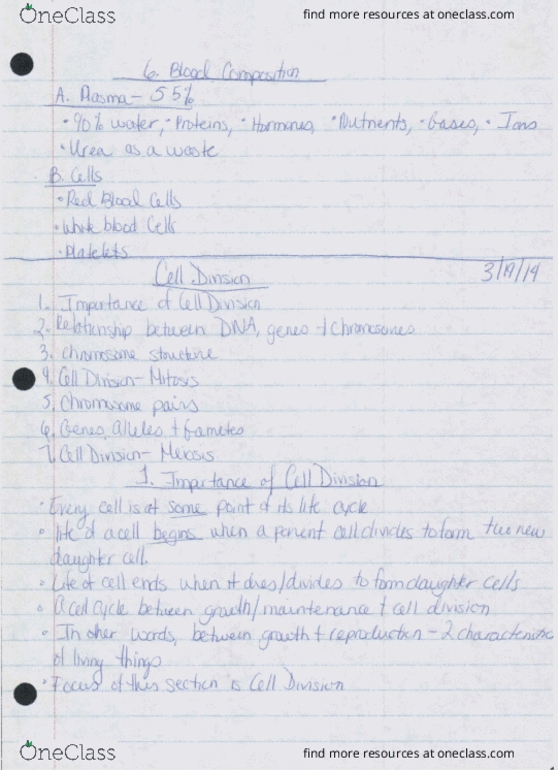 OneClass find more resources at oneclass.com
6. Blood Composition
A. Plasma - 55%
• 90% water, • Proteins, • Hormones, • Nutrients, • Gases, • Ions
• Urea as a waste
B. Cells
• Red Blood Cells
• White blood Cells
• Platelets
Cell Division 3/19/14
1. Importance of Cell Division
2. Relationship between DNA, genes + Chromosomes
3. Chromosome structure
4. Cell Division - Mitosis
5. Chromosome pairs
6. Genes, Alleles + Gametes
7. Cell Division - Meiosis
1. Importance of Cell Division
• Every cell is at some point of its life cycle
• life of a cell begins when a parent cell divides to form two new
daughter cell.
• Life of cell ends when it dies/divides to form daughter cells
• A cell cycle between growth/maintenance + cell division
• In other words, between growth + reproduction - 2 characteristic
of living things
• Focus of this section is Cell Division
OneClass find more resources at oneclass.com